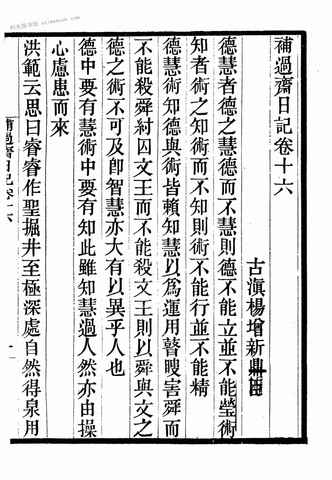 補過齋日記卷十六
古滇楊增新鼎臣
德慧者德之慧德而不慧則德不能立並不能瑩術
知者術之知術而不知則術不能行並不能精
德慧術知德與術皆賴知慧以為運用瞽瞍害舜而
不能殺舜紂囚文王而不能殺文王則以舜與文之
德之術不可及卽智慧亦大有以異乎人也
德中要有慧術中要有知此雖知慧過人然亦由操
心慮患而來
洪範云思曰睿睿作聖掘井至極深處自然得泉用
補過齋日記卷十六
一